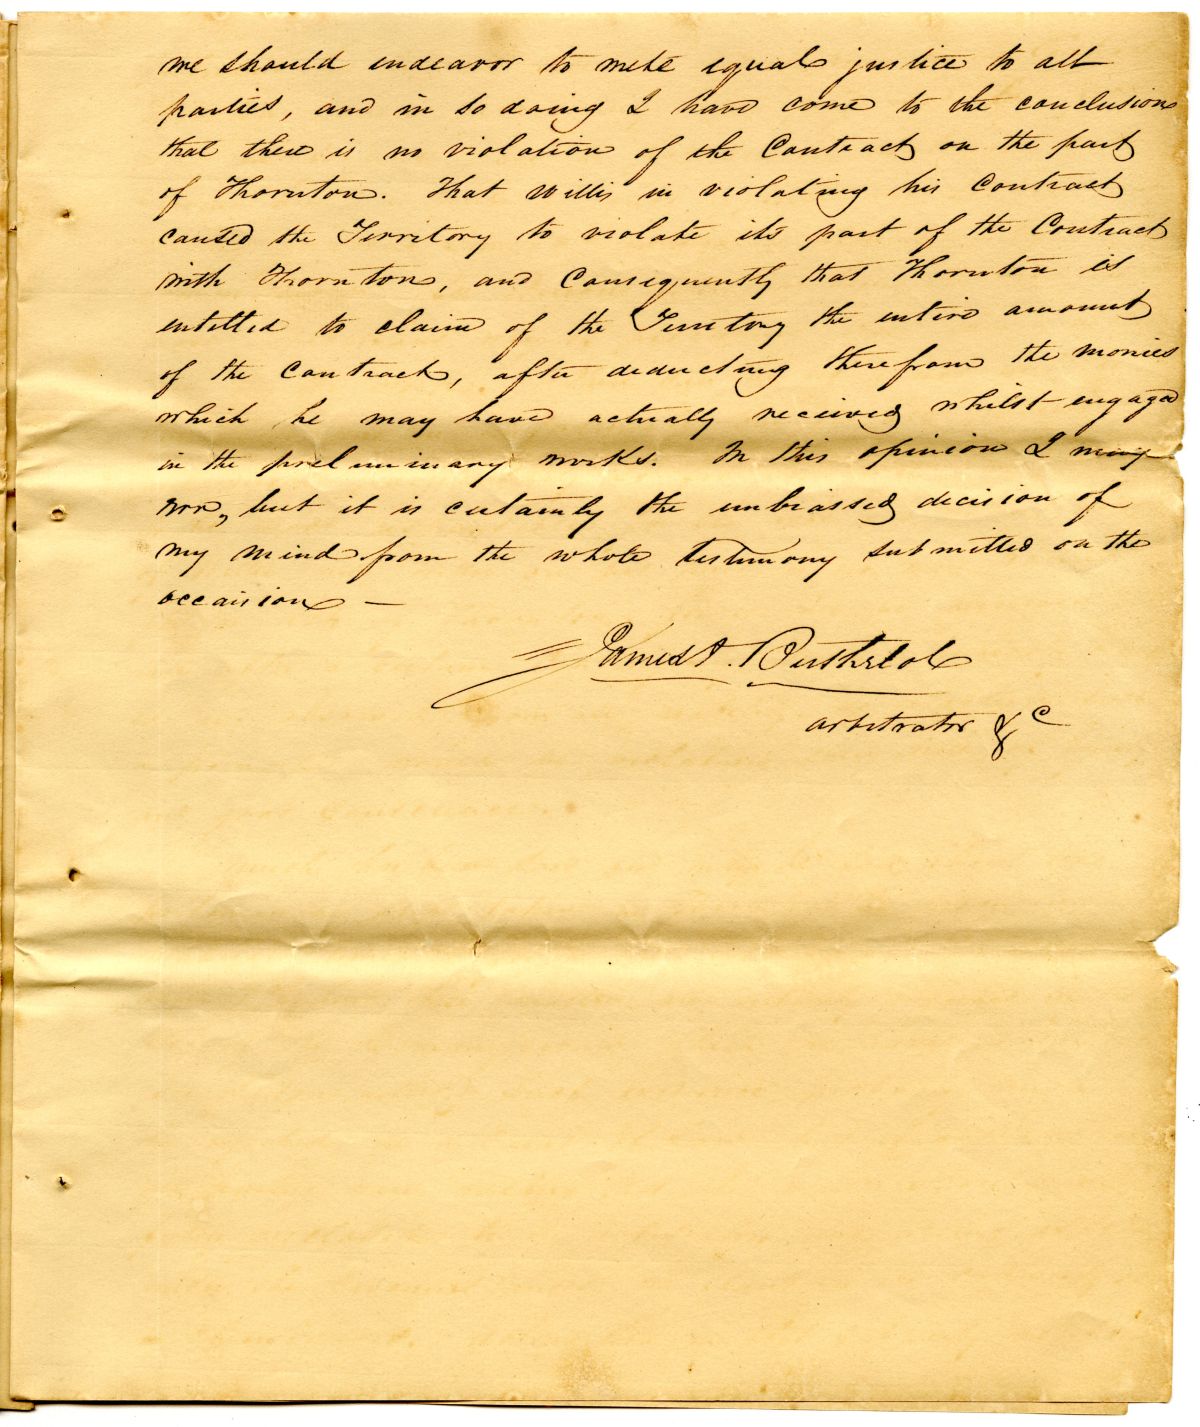 we should endeavor to mete equal justice to all
parties, and in so doing I have come to the conclusion
that there is no violation of the Contract on the part
of Thornton. That Willis in violating his Contract
caused the Territory to violate its part of the Contract
with Thornton, and Consequently that Thornton is
entitled to claim of the Territory the entire amount
of the Contract, after deducting therefrom the monies
which he may have actually received whilst engaged
in the preliminary works. In this opinion I may
err, but it is certainly the unbiassed decision of
my mind from the whole testimony submitted on the
occaision —
James A. Berthelot
arbitrator &c